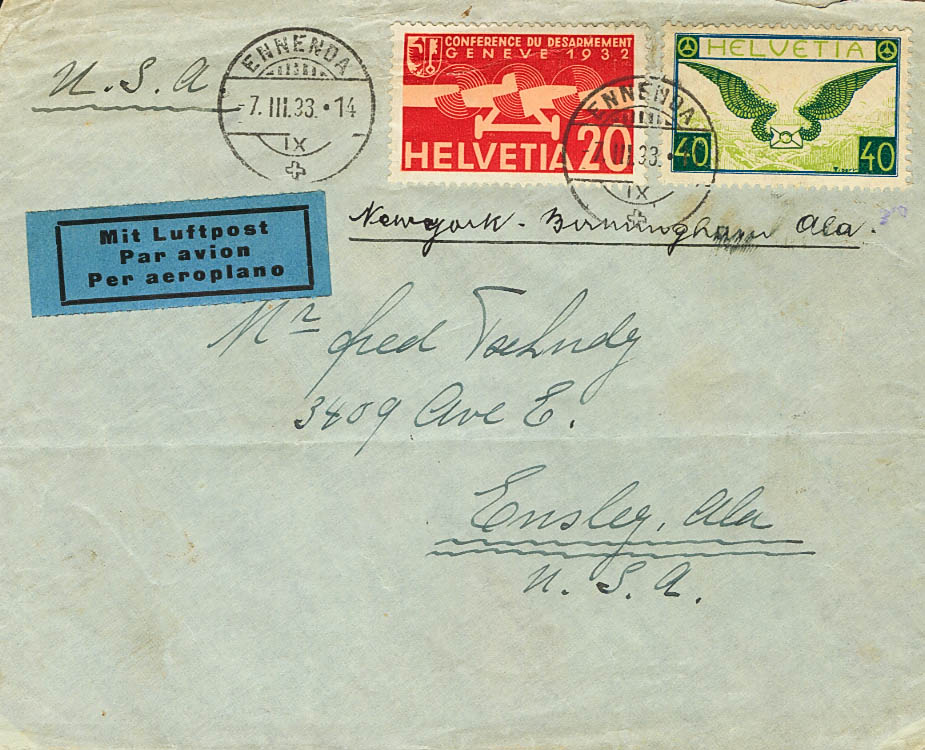 U.S.A
ENNENDA
-7.III.33.•14
IX
CONFERENCE DU DESARMEMENT
GENEVE 1932
HELVETIA 20
ENNENDA
-7.III.33.•
IX
HELVETIA
40 40
Mit Luftpost
Par avion
Per aeroplano
Newyork - Birmingham Ala.
Mr Fred Tschudy
3409 Ave E.
Ensley, Ala
U.S.A.